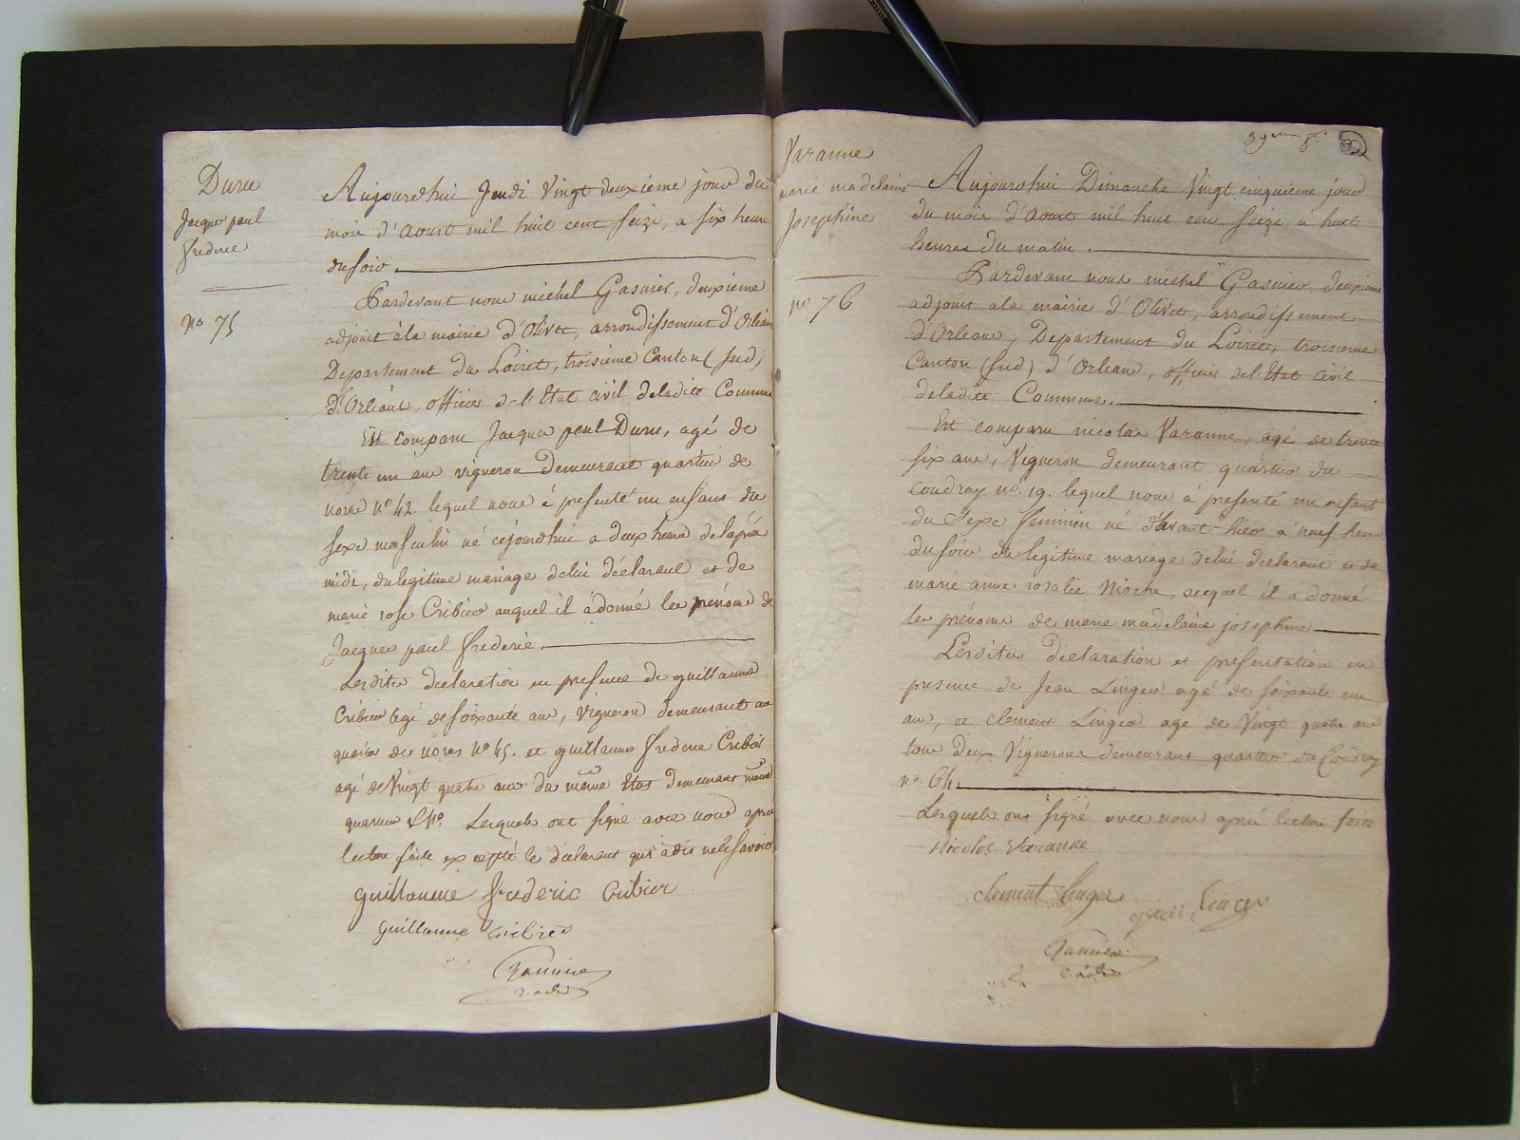 Duru
Jacque paul
frederic
No 75
Aujourdhui Jeudi Vingt deuxieme jour du
mois d'aoust mil huit cent seize, a six heure
du soir.
Pardevant nous michel Gasnier, deuxieme
adjoint à la mairie d'Olivet, arrondissement d'Orléans
Departement du Loiret, troisieme Canton (sud)
d'Orléans, officier de l'Etat civil deladite Commune
Est comparu Jacque paul Duru, agé de
trente un ans vigneron demeurant quartier de
nores No 42. lequel nous à presenté un enfans du
sexe masculin né cejourdhui a deux heure delaprès
midi, du legitime mariage delui déclarant et de
marie rose Cribier auquel il à donné les prénoms de
Jacques paul frederic.
Lesdites declaration en presence de guillaume
Cribier agé de soixante ans, vigneron demeurant au
quartier de nores No 45. et guillaume frederic Cribier
agé de Vingt quatre ans du même Etat demeurant même
quartier & No. Lesquels ont signé avec nous après
lecture faite excepté le declarant qui a dit nele savoir
guillaume frederic Cribier
guillaume Cribier
Gasnier
adj
Varanne
marie madelaine
Josephine
no 76
Aujourdhui Dimanche Vingt cinquieme jour
du mois d'Aoust mil huit cent seize à huit
heures du matin.
Pardevant nous michel Gasnier, deuxieme
adjoint ala mairie d'Olivet, arrondissement
d'Orleans, Departement du Loiret, troisieme
Canton (sud) d'Orleans, officier del'Etat civil
deladite Commune.
Est comparu nicolas Varanne, agé de trente
six ans, Vigneron demeurant quartier du
coudray no. 19. lequel nous à presenté un enfant
du sexe feminin né d'avant-hier à neuf heure
du soir du legitime mariage delui declarant et de
marie anne rosalie Mioche, auquel il a donné
les prénoms de marie madelaine josephine
Lesdites declaration et presentation en
presence de Jean Linger agé de soixante un
ans, et clement Linger agé de Vingt quatre ans
tous deux Vignerons demeurant quartier du Coudray
no 64.
Lesquels ons signé avec nous après lecture faite
Nicolas Varanne
clement linger
linger
Gasnier
adj